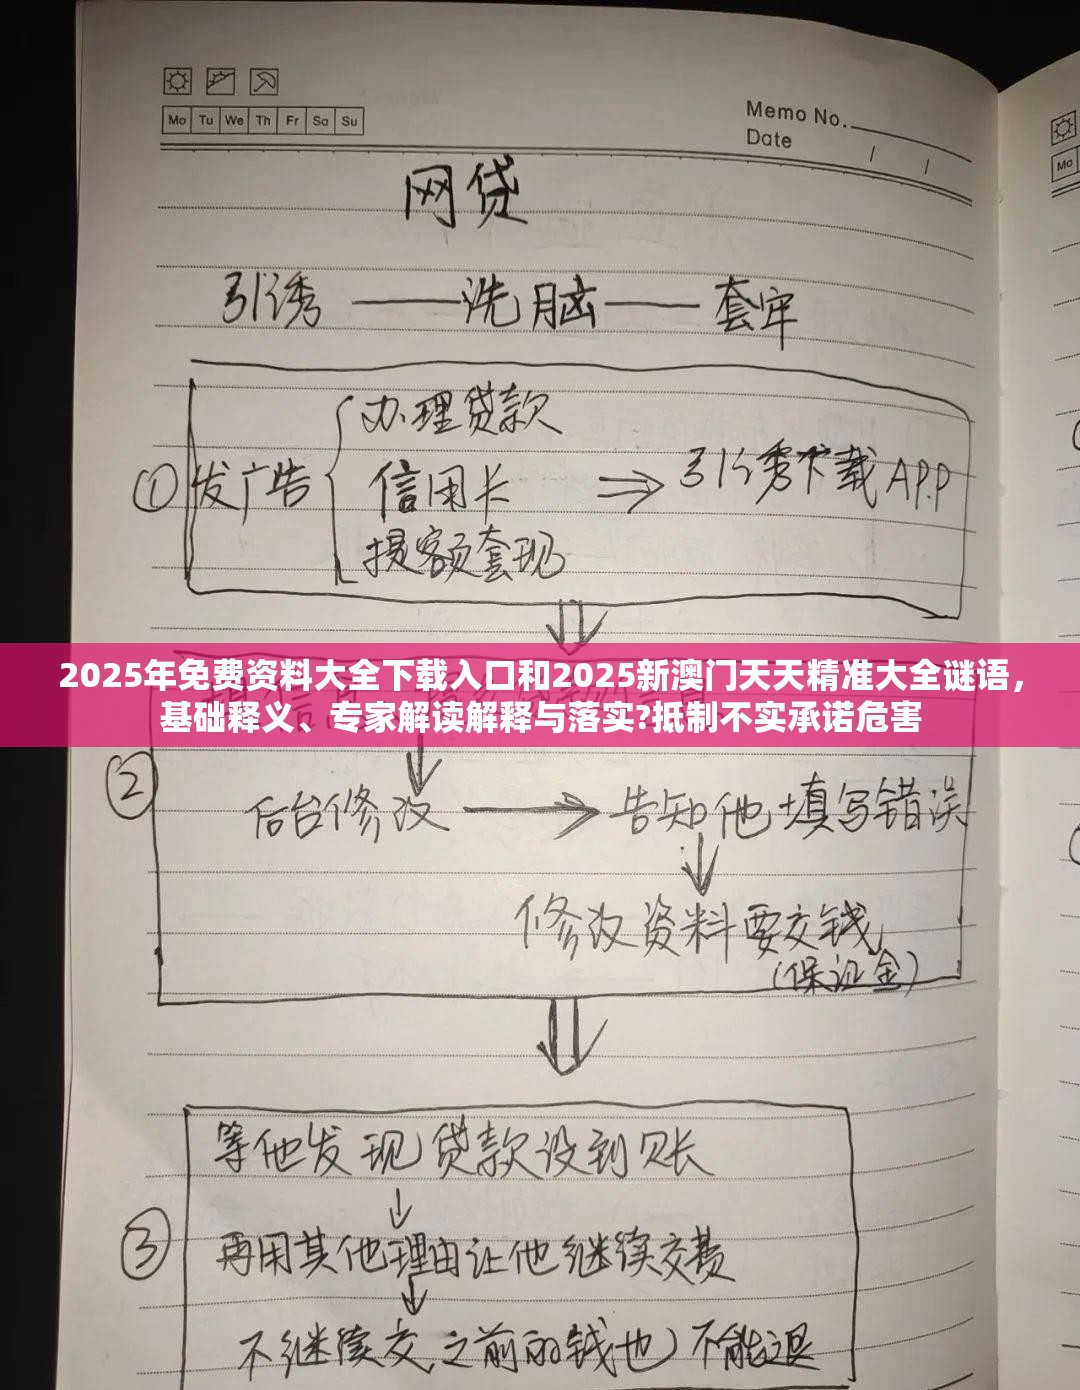 Mo Tu We Th Fr Sa Su
Memo No.
Date / /
Mo
网贷
引诱——洗脑——套牢
① 发广告
办理贷款
信用卡
提额套现
⇒ 引诱下载APP
2025年免费资料大全下载入口和2025新澳门天天精准大全谜语，
基础释义、专家解读解释与落实?抵制不实承诺危害
②
后台修改 → 告知他填写错误
修改资料要交钱
(保证金)
③
等他发现贷款没到账
再用其他理由让他继续交费
不继续交,之前的钱也不能退